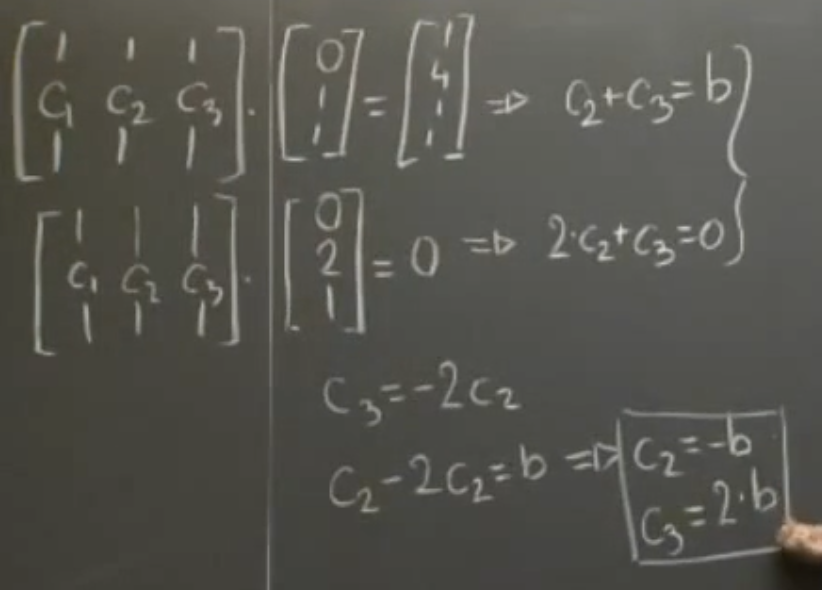 [c₁ c₂ c₃] · [0 1 1] = [1 4 1 1] ⇒ c₂+c₃=b
[c₁ c₂ c₃] · [0 2 1] = 0 ⇒ 2·c₂+c₃=0
c₃=-2c₂
c₂-2c₂=b ⇒ c₂=-b
c₃=2·b